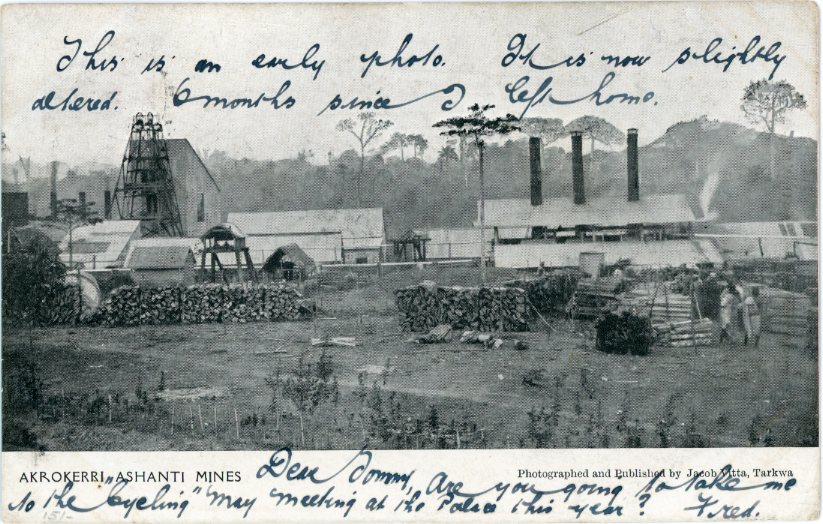 This is an early photo. It is now slightly
altered. 6 months since I left home.
AKROKERRI, ASHANTI MINES
Photographed and Published by Jacob Vitta, Tarkwa
Dear Tommy, Are you going to take me
to the "Cycling" May meeting at the Palace this year? Fred.
151-